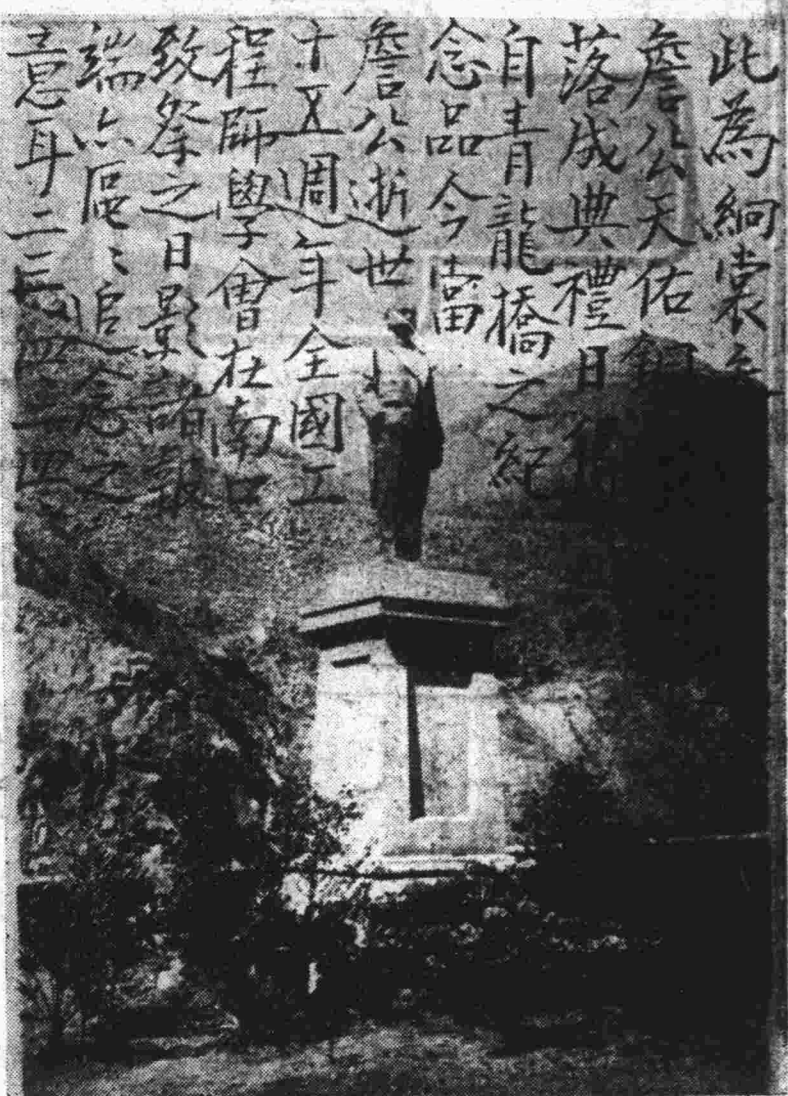 此為絅裳
詹公天佑銅
落成典禮日
自青龍橋之紀
念品今當
詹公逝世
十五週年全國工
程師學會在南口
致祭之日影諸報
端亦區〻追念之
意耳二三四二四